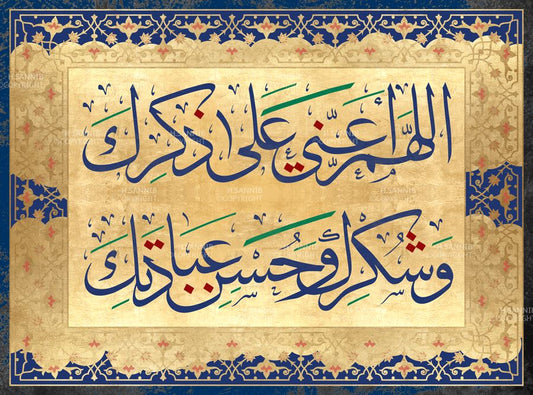 اللهَّم أَعَنّي عَلى اذكرِكَ
وَشُكرِك وَحُسنِ عِبَادَتِكَ
H.SANNIB
COPYRIGHT